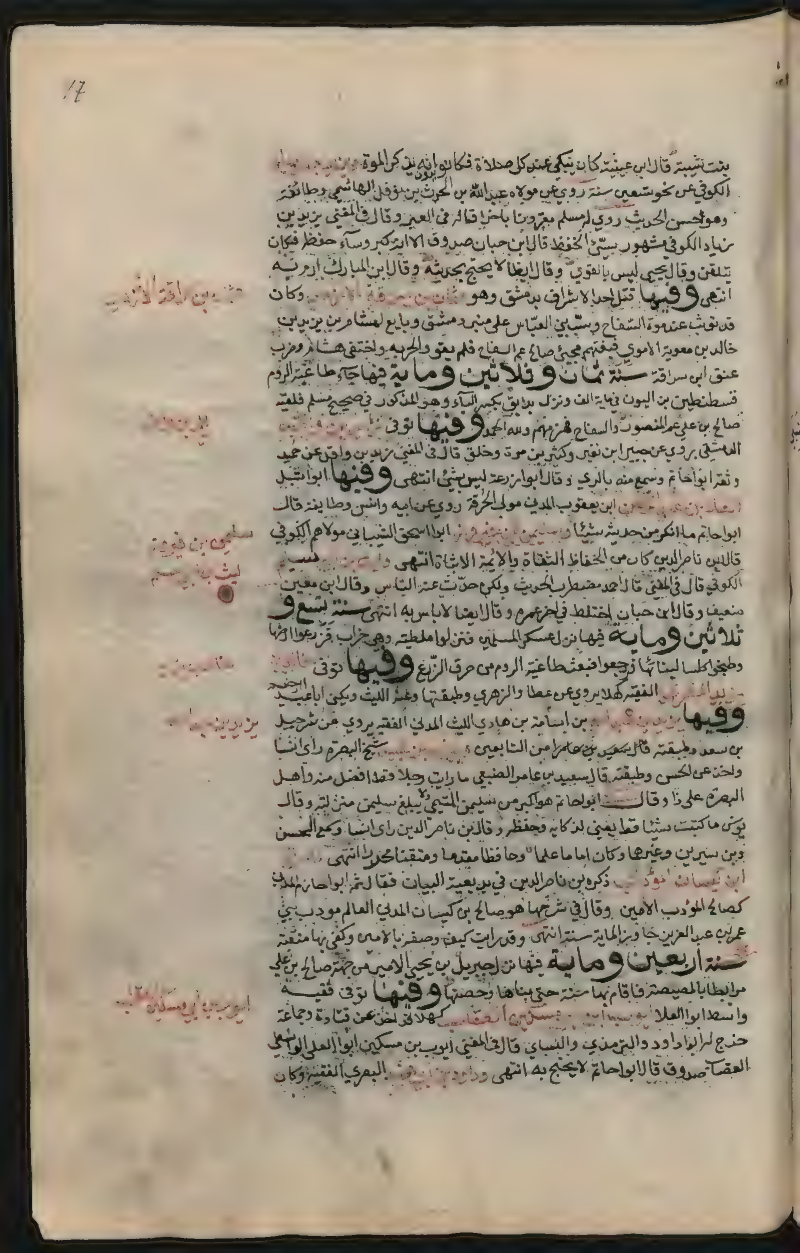 17
بنت شيبة قال ابن عيينة كان يبكي عند كل صلاة فكانوا يرونه يذكر الموت
الكوفي عن نحو تسعين سنة روي عن مولاه عبد الله بن الحرث بن نوفل الهاشمي وطائفة
وهو حسن الحديث روي له مسلم مقرونا باخر قاله في العبر وقال في المغني يزيد بن
زياد الكوفي مشهور سيئ الحفظ قال ابن حبان صدوق الا انه كبر وساء حفظه فكان
يتلقن وقال يحيى ليس بالقوي وقال ايضا لا يحتج بحديثه وقال ابن المبارك ارم به
انتهى وفيها قتل احد الاشراف بدمشق وهو عثمان بن سراقة الازدي وكان
عثمان بن سراقة الأزدي
قد توثب عند موت السفاح وسب بني العباس على منبر دمشق وبايع لهشام بن يزيد بن
خالد بن معوية الاموي فبغتهم مجيئ صالح عم السفاح فلم يقو والحربه واختفى هشام وضرب
عنق ابن سراقة سنة ثمان وثلاثين وماية فيها جاء طاغية الروم
قسطنطين بن اليون في ماية الف ونزل بدابق بكسر الباء وهو المذكور في صحيح مسلم فلقيه
صالح بن علي عم المنصور والسفاح فهزمهم ولله الحمد وفيها توفي زيد بن واقد
زيد بن واقد
الدمشقي يروي عن جبير ابن نفير وكثير بن مرة وخلق قال في المغني زيد بن واقد عن حميد
وثقه ابو حاتم وسمع منه بالري وقال ابو زرعة ليس بشئ انتهى وفيها ابو شبل
العلاء بن عبد الرحمن ابن يعقوب المدني مولى الحرقة روي عن ابيه وانس وطايفة قال
ابو حاتم ما انكر من حديثه شيئا وسليمن بن فيروز ابو اسحق الشيباني مولاهم الكوفي
سليمن بن فيروز
قال ابن ناصر الدين كان من الحفاظ الثقاة والايمة الاثباة انتهى وليث بن ابي سليم
ليث بن ابي سليم
الكوفي قال في المغني قال احمد مضطرب الحديث ولكن حدث عنه الناس وقال ابن معين
ضعيف وقال ابن حبان اختلط في اخر عمره وقال ايضا لا باس به انتهى سنة تسع و
ثلاثين وماية فيها نزل عسكر المسلمين فنزلوا ملطيه وهي خراب فزرعوا ارضها
وطبخوا كلسا لبنائها فرجعوا فبعث طاغية الروم من حرق الزرع وفيها توفي خالد بن
خالد بن يزيد
يزيد المصري الفقيه كهلا يروي عن عطا والزهري وطبقتهما وعنه الليث ويكنى ابا عبد الرحيم
وفيها يزيد بن عبد الله بن اسامة بن هادي الليثي المدني الفقيه يروي عن شرحبيل
يزيد بن عبد الله
بن سعد وطبقته قال سعيد بن عامر من التابعين يونس بن عبيد شيخ البصرة راى انسا
واخذ عن الحسن وطبقته قال سعيد بن عامر الضبعي ما رايت رجلا قط افضل منه واهل
البصرة على ذا وقال ابو حاتم هو اكبر من سليمن التيمي ولا يبلغ سليمن منزلته وقال
يونس ما كتبت شيئا قط يعني لذكايه وحفظه وقال بن ناصر الدين راى انسا وسمع الحسن
وبن سيرين وغيرهما وكان اماما علما وحافظا مقدما ومتقنا محررا انتهى
ابن كيسان المؤدب ذكره بن ناصر الدين في بديعية البيات فقال ثم ابو حازم المدني
كصالح المؤدب الامين وقال في شرحها هو صالح بن كيسان المدني العالم مودب بني
عمر بن عبد العزيز جاوز الماية سنة انتهى وقد رايت كيف وصفه بالامين وكفى بها منقبة
سنة اربعين وماية فيها نزل جبريل بن يحيى الامير من جهة صالح بن علي
مرابطا بالمصيصة فاقام بها سنة حتى بناها وحصنها وفيها توفي فقيه
واسط ابو العلا ايوب بن ابي مسكين القصاب كهلا اخذ عن قتادة وجماعة
ايوب بن ابي مسكين القصاب
خرج له ابو داود والترمذي والنساي قال في المغني ايوب بن مسكين ابو العلى الواسطي
القصاب صدوق قال ابو حاتم لا يحتج به انتهى وداود بن ابي هند البصري الفقيه وكان